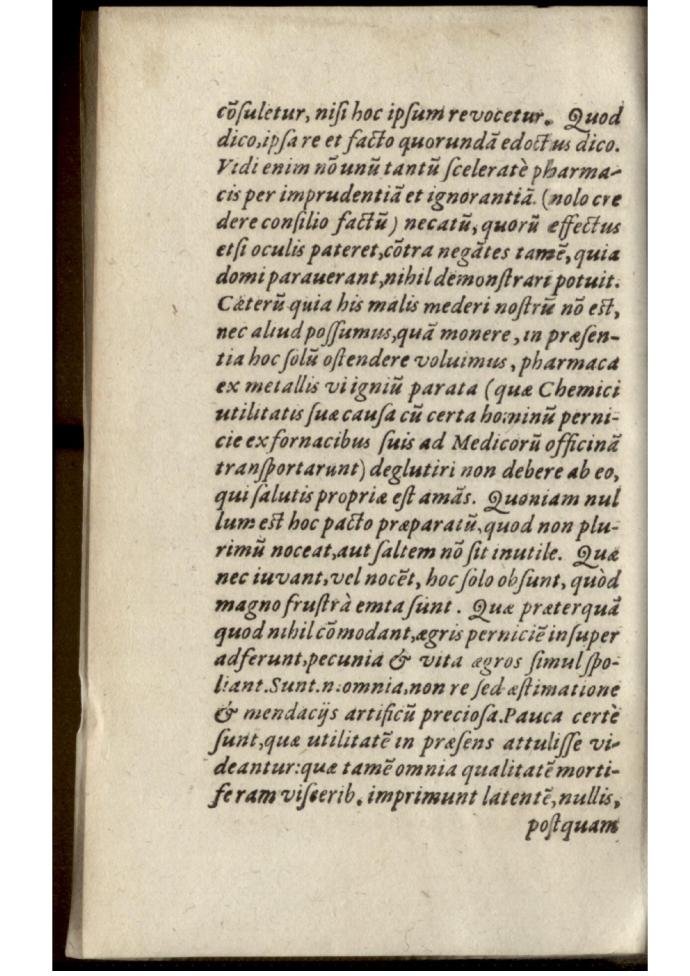 cõſuletur, niſi hoc ipſum revocetur. Quod
dico, ipſa re et facto quorundã edoctus dico.
Vidi enim nõ unũ tantũ ſceleratè pharma-
cis per imprudentiã et ignorantiã (nolo cre
dere conſilio factũ) necatũ, quorũ effectus
etſi oculis pateret, cõtra negãtes tamẽ, quia
domi parauerant, nihil demonſtrari potuit.
Cæterũ quia his malis mederi noſtrũ nõ eſt,
nec aliud poſſumus, quã monere, in præſen-
tia hoc ſolũ oſtendere voluimus, pharmaca
ex metallis vi igniũ parata (quæ Chemici
utilitatis ſuæ cauſa cũ certa hominũ perni-
cie ex fornacibus ſuis ad Medicorũ officinã
tranſportarunt) deglutiri non debere ab eo,
qui ſalutis propriæ eſt amãs. Quoniam nul
lum eſt hoc pacto præparatũ, quod non plu-
rimũ noceat, aut ſaltem nõ ſit inutile. Quæ
nec iuvant, vel nocẽt, hoc ſolo obſunt, quòd
magno fruſtrà emta ſunt. Quæ præterquã
quod nihil cõmodant, ægris perniciẽ inſuper
adferunt, pecunia & vita ægros ſimul ſpo-
liant. Sunt .n. omnia, non re ſed æſtimatione
& mendacijs artificũ precioſa. Pauca certè
ſunt, quæ utilitatẽ in præſens attuliſſe vi-
deantur: quæ tamẽ omnia qualitatẽ morti-
feram viſcerib. imprimunt latentẽ, nullis,
poſtquam